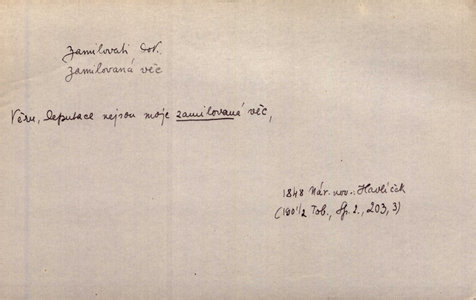 Zamilovati dok.
zamilovaná věc
Věru, deputace nejsou moje zamilované věc,
1848 Nár. nov.: Havlíček
(1901/2 Tob., Sp. 2., 203, 3)